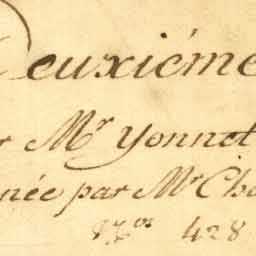 Deuxiéme
r Mr. Yonnet
née par Mr. Cha
Nos 428